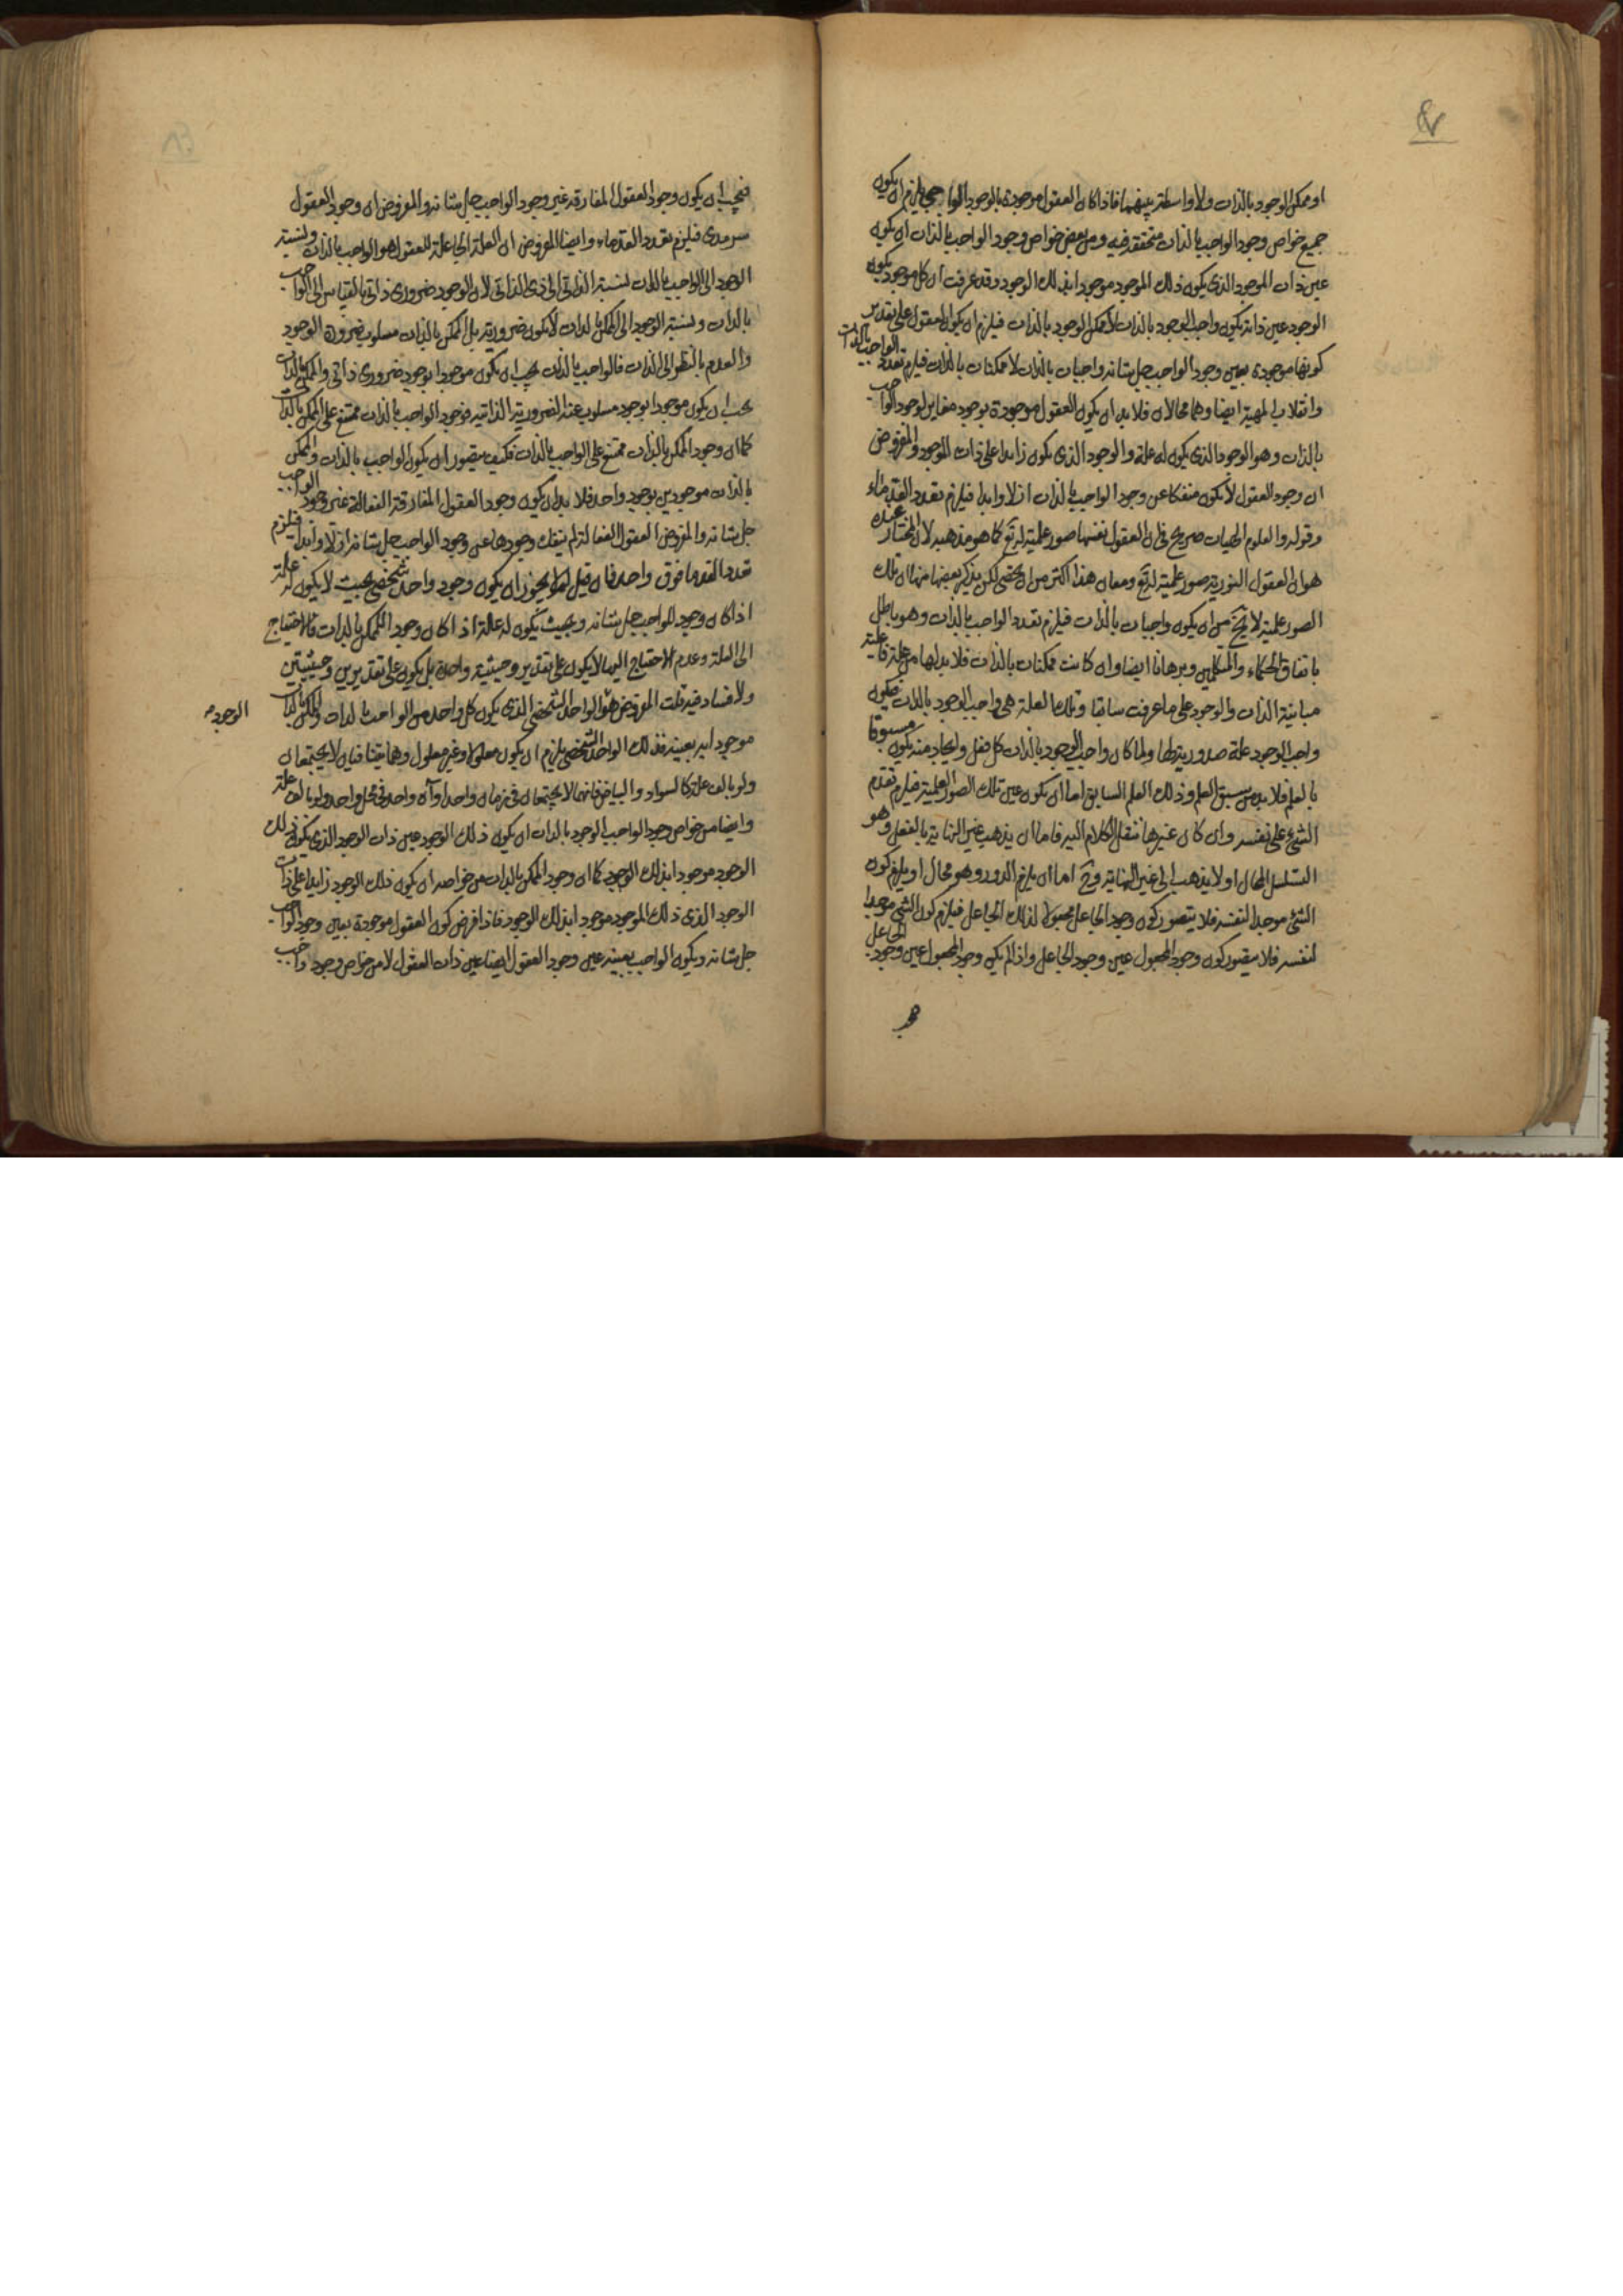 ٤٧
او ممكن الوجود بالذات ولا واسطة بينهما فاذا كان العقول موجودة بالوجود الواجبي يلزم ان يكون
جميع خواص وجود الواجب بالذات متحققة فيه ومن بعض خواص وجود الواجب بالذات ان يكون
عين ذات الموجود الذى يكون ذلك الموجود موجودا بذلك الوجود وقد عرفت ان كل موجود يكون
الوجود عين ذاته يكون واجب الوجود بالذات لا ممكن الوجود بالذات فيلزم ان يكون العقول على تقدير
كونها موجودة بعين وجود الواجب جل شانه واجبات بالذات لا ممكنات بالذات فيلزم تعدد الواجب بالذات
وانقلاب المهية ايضا وهما محالان فلا بد ان يكون العقول موجودة بوجود مغاير لوجود الواجب
بالذات وهو الوجود الذى يكون له علة والوجود الذى يكون زايدا على ذات الموجود والمفروض
ان وجود العقول لا يكون منفكا عن وجود الواجب بالذات ازلا وابدا فيلزم تعدد القدماء
وقوله والعلوم الهيات صريح فى ان العقول نفسها صور علمية له تع كما هو مذهبه لان المختار عنده
هو ان العقول النورية صور علمية له تع ومفاسد هذا اكثر من ان يحصى لكن يذكر بعضها منها ان تلك
الصور علمية لا يخ من ان يكون واجبات بالذات فيلزم تعدد الواجب بالذات وهو باطل
باتفاق الحكماء والمتكلمين وبرهانا ايضا وان كانت ممكنات بالذات فلا بد لها من علة فاعلية
مباينة الذات والوجود على ما عرفت سابقا وتلك العلة هى واجب الوجود بالذات فيكون
واجب الوجود علة صدورية لها ولما كان واجب الوجود بالذات كل فعل وايجاد منه يكون مسبوقا
بالعلم فلا بد من سبق العلم وذلك العلم السابق اما ان يكون عين تلك الصور العلمية فيلزم تقدم
الشئ على نفسه وان كان غيرها ننقل الكلام اليه فاما ان يذهب غير النهاية بالفعل وهو
التسلسل المحال او لا يذهب الى غير النهاية وح اما ان يلزم الدور وهو محال او يلزم كون
الشئ موجدا لنفسه فلا يتصور كون وجود الجاعل مجعولا لذلك الجاعل فيلزم كون الشئ موجدا
لنفسه فلا يتصور كون وجود المجعول عين وجود الجاعل واذا لم يكن وجود المجعول عين وجود الجاعل
فيجب ان يكون وجود العقول المفارقة غير وجود الواجب جل شانه والمفروض ان وجود العقول
سرمدى فيلزم تعدد القدماء وايضا المفروض ان العلة الجاعلة للعقول هو الواجب بالذات ونسبة
الوجود الى الواجب بالذات نسبة الذاتى الى ذى الذاتى لان الوجود ضرورى ذاتى بالقياس الى الواجب
بالذات ونسبة الوجود الى الممكن بالذات لا يكون ضرورية بل الممكن بالذات مسلوب ضرورة الوجود
والعدم بالنظر الى الذات فالواجب بالذات يجب ان يكون موجودا بوجود ضرورى ذاتى والممكن بالذات
يجب ان يكون موجودا بوجود مسلوب عنه الضرورية الذاتية فوجود الواجب بالذات ممتنع على الممكن بالذات
كما ان وجود الممكن بالذات ممتنع على الواجب بالذات فكيف يتصور ان يكون الواجب بالذات والممكن
بالذات موجودين بوجود واحد فلا بد ان يكون وجود العقول المفارقة الفعالة غير وجود الواجب
جل شانه والمفروض العقول الفعالة لم ينفك وجودها عن وجود الواجب جل شانه ازلا وابدا فيلزم
تعدد القدما فوق واحد فان قيل لم لا يجوز ان يكون وجود واحد شخصى بحيث لا يكون له علة
اذا كان وجود الواجب جل شانه وبحيث يكون له علة اذا كان وجود الممكن بالذات فالاحتياج
الى العلة وعدم الاحتياج اليها لا يكون على تقدير وحيثية واحدة بل يكون على تقديرين وحيثيتين
ولا فساد فيه قلت المفروض هو الواحد الشخصى الذى يكون كل واحد من الواجب بالذات والممكن بالذات
الوجود
موجودا به بعينه فذلك الواحد الشخصى يلزم ان يكون معلولا وغير معلول وهما متنافيان لا يجتمعان
ولو بالف علة كالسواد والبياض فانهما لا يجتمعان فى زمان واحد او آن واحد فى محل واحد ولو بالف علة
وايضا من خواص وجود الواجب الوجود بالذات ان يكون ذلك الوجود عين ذات الوجود الذى يكون ذلك
الوجود موجودا بذلك الوجود كما ان وجود الممكن بالذات من خواصه ان يكون ذلك الوجود زايدا على ذات
الوجود الذى ذلك الموجود موجودا بذلك الوجود فاذا فرض كون العقول موجودة بعين وجود الواجب
جل شانه ويكون الواجب بعينه عين وجود العقول ايضا عين ذات العقول لا من خواص وجود واجب